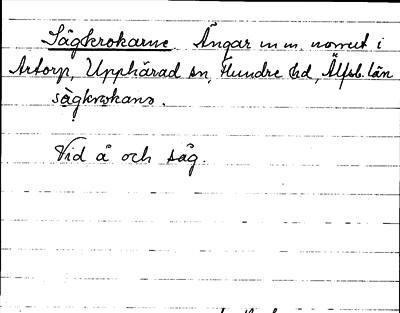 Sågkrokarne. Ängar m m norrut i
Artorp, Upphärad sn, Flundre hd, Älfsb. län
sågkrokana.
Vid å och såg.